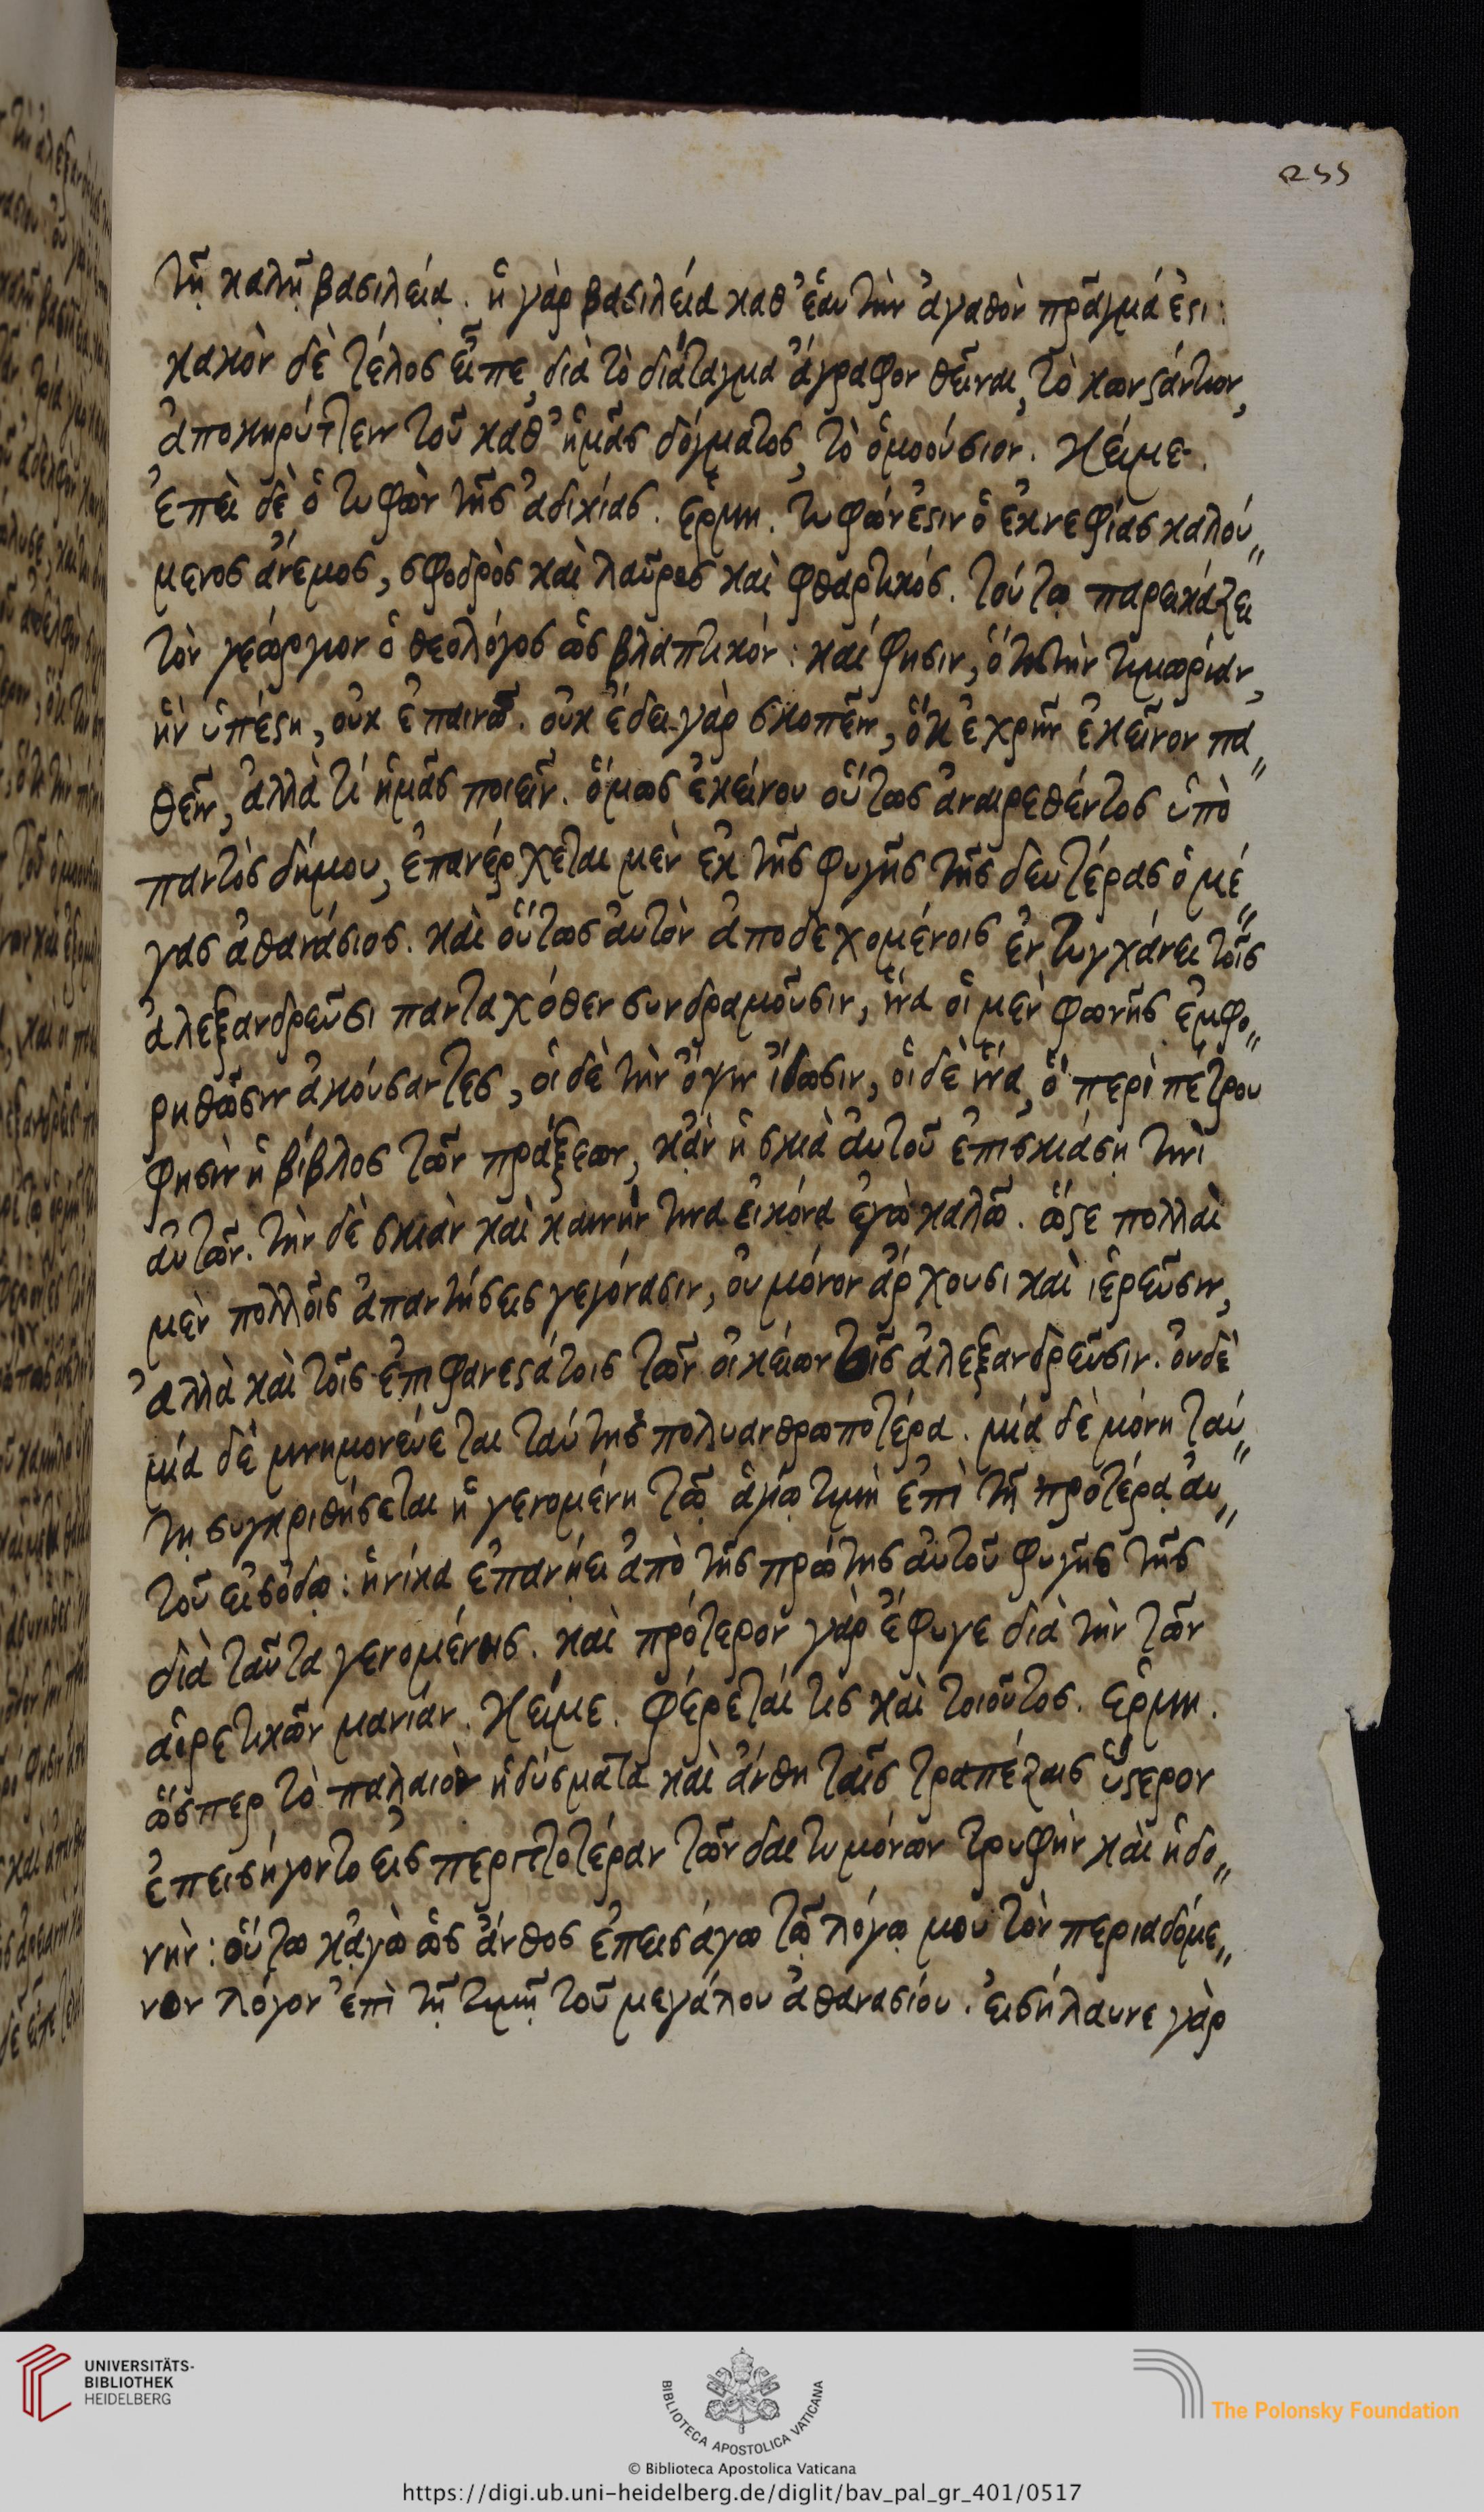 255
τῇ καλῇ βασιλείᾳ. ἡ γὰρ βασιλεία καθ' ἑαυτὴν ἀγαθὸν πρᾶγμά ἐστι:
κακὸν δὲ τέλος εἶπε, διὰ τὸ διάταγμα ἄγραφον θεῖναι, τὸ κωνστάντιον,
ἀποκηρύττειν τοῦ καθ' ἡμᾶς δόγματος, τὸ ὁμοούσιον. Κείμε.
ἐπεὶ δὲ ὁ τυφὼν τῆς ἀδικίας. ἑρμη. τυφών ἐστιν ὁ ἐκνεφίας καλού„
μενος ἄνεμος, σφοδρὸς καὶ λαῦρος καὶ φθαρτικός. τούτῳ παρεικάζει
τὸν γεώργιον ὁ θεολόγος ὡς βλαπτικόν: καί φησιν, ὅτι τὴν τιμωρίαν,
ἣν ὑπέστη, οὐκ ἐπαινῶ. οὐκ ἔδει γὰρ σκοπεῖν, ὅτι ἐχρῆν ἐκεῖνον πα„
θεῖν, ἀλλὰ τί ἡμᾶς ποιεῖν. ὅμως ἐκείνου οὕτως ἀναιρεθέντος ὑπὸ
παντὸς δήμου, ἐπανέρχεται μὲν ἐκ τῆς φυγῆς τῆς δευτέρας ὁ μέ„
γας ἀθανάσιος. καὶ οὕτως αὐτὸν ἀποδεχομένοις ἐντυγχάνει τοῖς
ἀλεξανδρεῦσι πανταχόθεν συνδραμοῦσιν, ἵνα οἱ μὲν φωνῆς ἐμφο„
ρηθῶσιν ἀκούσαντες, οἱ δὲ τὴν ὄψιν ἴδωσιν, οἱ δὲ ἵνα, ὃ περὶ πέτρου
φησὶν ἡ βίβλος τῶν πράξεων, κἂν ἡ σκιὰ αὐτοῦ ἐπισκιάσῃ τινὶ
αὐτῶν. τὴν δὲ σκιὰν καὶ καινήν τινα εἰκόνα ἐγὼ καλῶ. ὥστε πολλαὶ
μὲν πολλοῖς ἀπαντήσεις γεγόνασιν, οὐ μόνον ἄρχουσι καὶ ἱερεῦσιν,
ἀλλὰ καὶ τοῖς ἐπιφανεστάτοις τῶν οἰκείων τοῖς ἀλεξανδρεῦσιν. οὐδὲ
μία δὲ μνημονεύεται ταύτης πολυανθρωποτέρα. μιᾷ δὲ μόνῃ ταύ„
τῃ συγκριθήσεται ἡ γενομένη τῷ ἁγίῳ τιμὴ ἐπὶ τῇ προτέρᾳ αὐ„
τοῦ εἰσόδῳ: ἡνίκα ἐπανῄει ἀπὸ τῆς πρώτης αὐτοῦ φυγῆς τῆς
διὰ ταῦτα γενομένης. καὶ πρότερον γὰρ ἔφυγε διὰ τὴν τῶν
αἱρετικῶν μανίαν. Κείμε. Φέρεταί τις καὶ τοιοῦτος. ἑρμη.
ὥσπερ τὸ παλαιὸν ἡδύσματα καὶ ἄνθη ταῖς τραπέζαις ὕστερον
ἐπεισήγοντο εἰς περιττοτέραν τῶν δαιτυμόνων τρυφὴν καὶ ἡδο„
νήν: οὕτω κἀγὼ ὡς ἄνθος ἐπεισάγω τῷ λόγῳ μου τὸν περιαδόμε„
νον λόγον ἐπὶ τῇ τιμῇ τοῦ μεγάλου ἀθανασίου. εἰσήλαυνε γὰρ
UNIVERSITÄTS-
BIBLIOTHEK
HEIDELBERG
BIBLIOTECA APOSTOLICA VATICANA
The Polonsky Foundation
© Biblioteca Apostolica Vaticana
https://digi.ub.uni-heidelberg.de/diglit/bav_pal_gr_401/0517